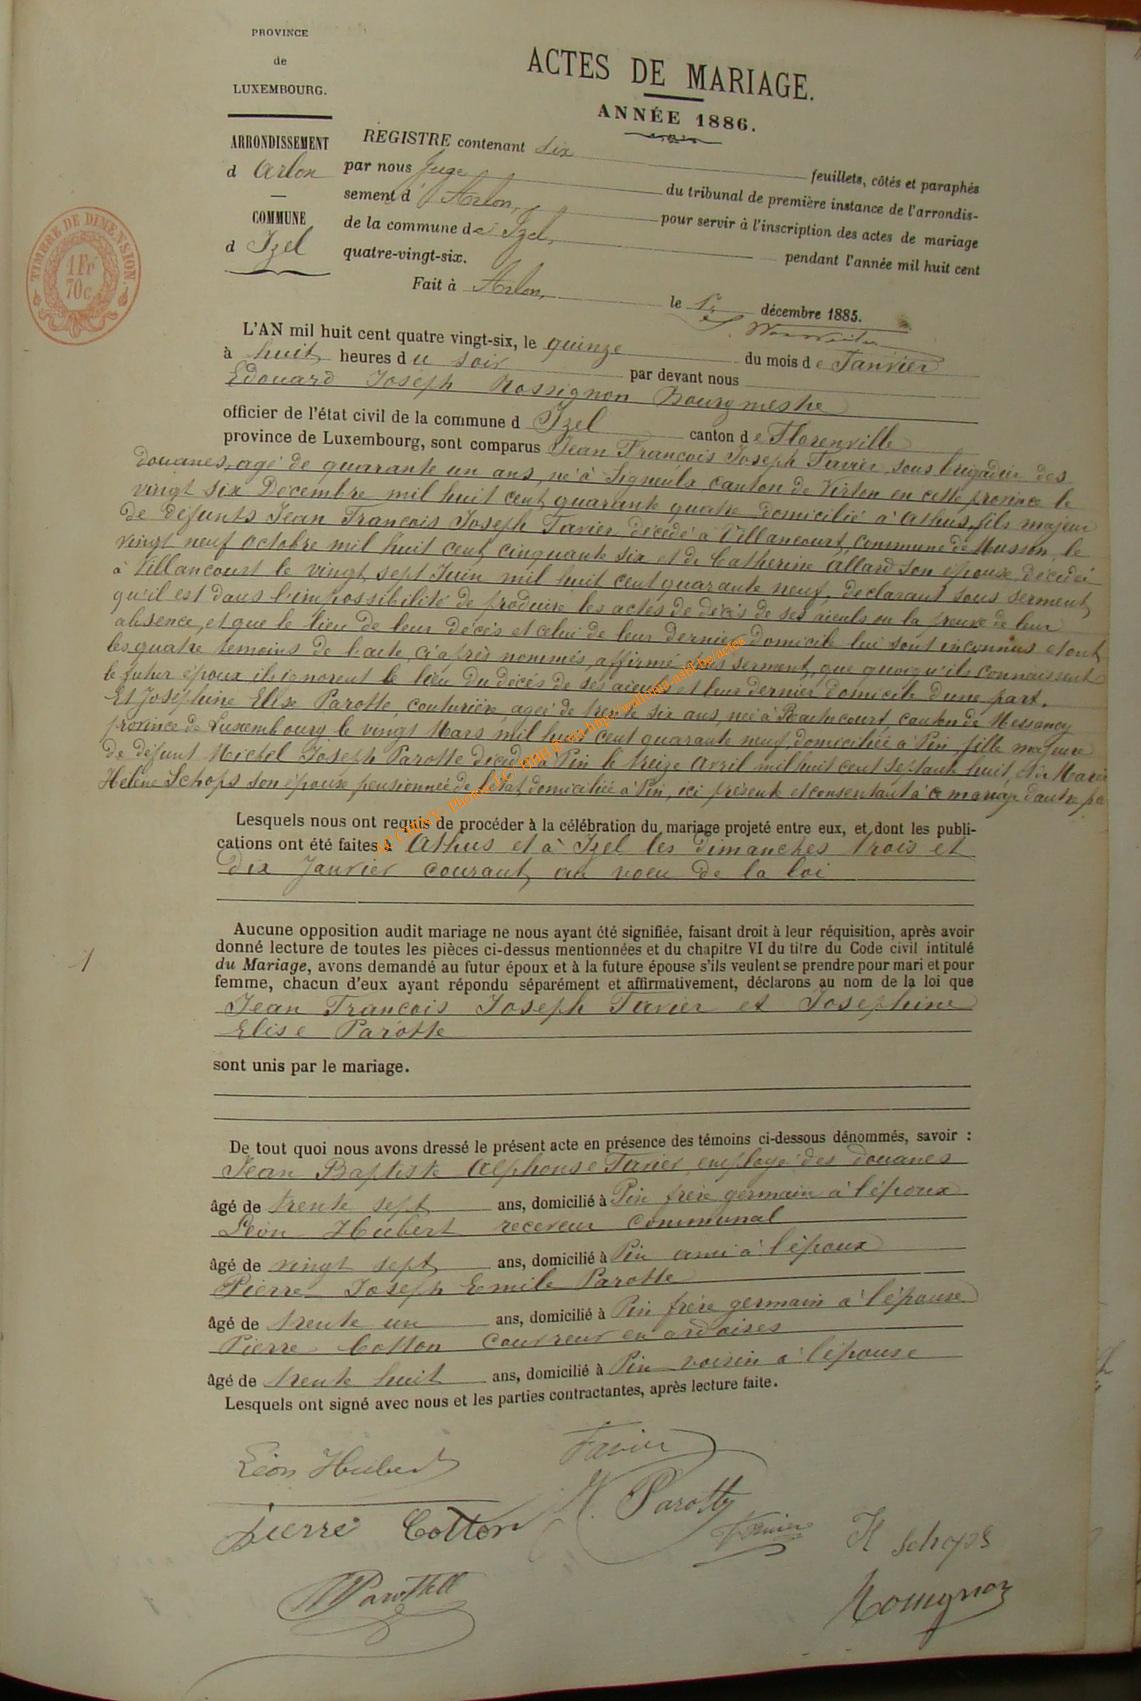 PROVINCE
de
LUXEMBOURG.
ARRONDISSEMENT
d Arlon
COMMUNE
d Izel
TIMBRE DE DIMENSION.
1 Fr
70 c.
ACTES DE MARIAGE.
ANNÉE 1886.
REGISTRE contenant six feuillets, côtés et paraphés
par nous Juge du tribunal de première instance de l'arrondis-
sement d'Arlon, pour servir à l'inscription des actes de mariage
de la commune d Izel, pendant l'année mil huit cent
quatre-vingt-six.
Fait à Arlon, le décembre 1885.
L'AN mil huit cent quatre vingt-six, le quinze du mois de Janvier
à huit heures du soir par devant nous
Edouard Joseph Rossignon Bourgmestre
officier de l'état civil de la commune d Izel canton de Florenville
province de Luxembourg, sont comparus Jean François Joseph Tavier, sous brigadier des
douanes, agé de quarante un ans, né à Signeulx canton de Virton en cette province le
vingt six Décembre mil huit cent quarante quatre domicilié à Athus, fils majeur
de défunts Jean François Joseph Tavier décédé à Villancourt, commune de Musson, le
vingt neuf Octobre mil huit cent cinquante six et de Catherine Allard son épouse décédée
à Villancourt le vingt sept Juin mil huit cent quarante neuf, déclarant sous serment
qu'il est dans l'impossibilité de produire les actes de décès de ses aieuls ou la preuve de leur
absence, et que le lieu de leur décès et celui de leur dernier domicile lui sont inconnus et ont
les quatre témoins de l'acte, ci après nommés, affirmé sous serment, que quoiqu'ils connaissent
le futur époux ils ignorent le lieu du décès de ses aieuls et leur dernier domicile d'une part.
Et Joséphine Elise Parotte, couturière, agée de trente six ans, née à canton de Messancy
province de Luxembourg le vingt Mars mil huit cent quarante neuf, domiciliée à Pin fille majeure
de défunt Michel Joseph Parotte décédé à Pin le treize Avril mil huit cent septante huit, et de Marie
Hélène Schops son épouse pensionnée de l'état domiciliée à Pin, ici présente et consentant à ce mariage d'autre pa
Lesquels nous ont requis de procéder à la célébration du mariage projeté entre eux, et dont les publi-
cations ont été faites à Athus et à Izel les dimanches trois et
dix Janvier courant, au voeu de la loi
Aucune opposition audit mariage ne nous ayant été signifiée, faisant droit à leur réquisition, après avoir
donné lecture de toutes les pièces ci-dessus mentionnées et du chapitre VI du titre du Code civil intitulé
du Mariage, avons demandé au futur époux et à la future épouse s'ils veulent se prendre pour mari et pour
femme, chacun d'eux ayant répondu séparément et affirmativement, déclarons au nom de la loi que
Jean François Joseph Tavier et Joséphine
Elise Parotte
sont unis par le mariage.
1
De tout quoi nous avons dressé le présent acte en présence des témoins ci-dessous dénommés, savoir :
Jean Baptiste Alphonse Tavier employé des douanes
âgé de trente sept ans, domicilié à Pin frère germain à l'époux
Léon Hubert receveur communal
âgé de vingt sept ans, domicilié à Pin ami à l'époux
Pierre Joseph Emile Parotte
âgé de trente un ans, domicilié à Pin frère germain à l'épouse
Pierre Cotton couvreur en ardoises
âgé de trente huit ans, domicilié à Pin voisin à l'épouse
Lesquels ont signé avec nous et les parties contractantes, après lecture faite.
Léon Hubert Tavier
Pierre Cotton Parotte
Tavier H Schops
Parotte Rossignon